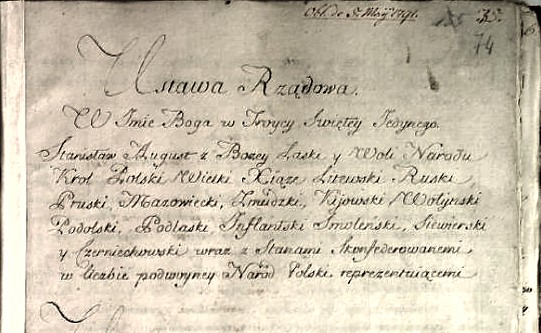 Obl. de 5. Maij 1791.
155 35.
74
Ustawa Rządowa.
W Imie Boga w Troycy Swiętey Jedynego.
Stanisław August z Bozey Łaski y Woli Narodu
Krol Polski Wielki Xiąze Litewski Ruski
Pruski, Mazowiecki, Zmudzki, Kijowski Wołyński
Podolski, Podlaski Inflantski Smolenski, Siewierski
y Czerniechowski wraz z Stanami Skonfederowanemi
w liczbie podwoyney Narod Polski reprezentuiącemi